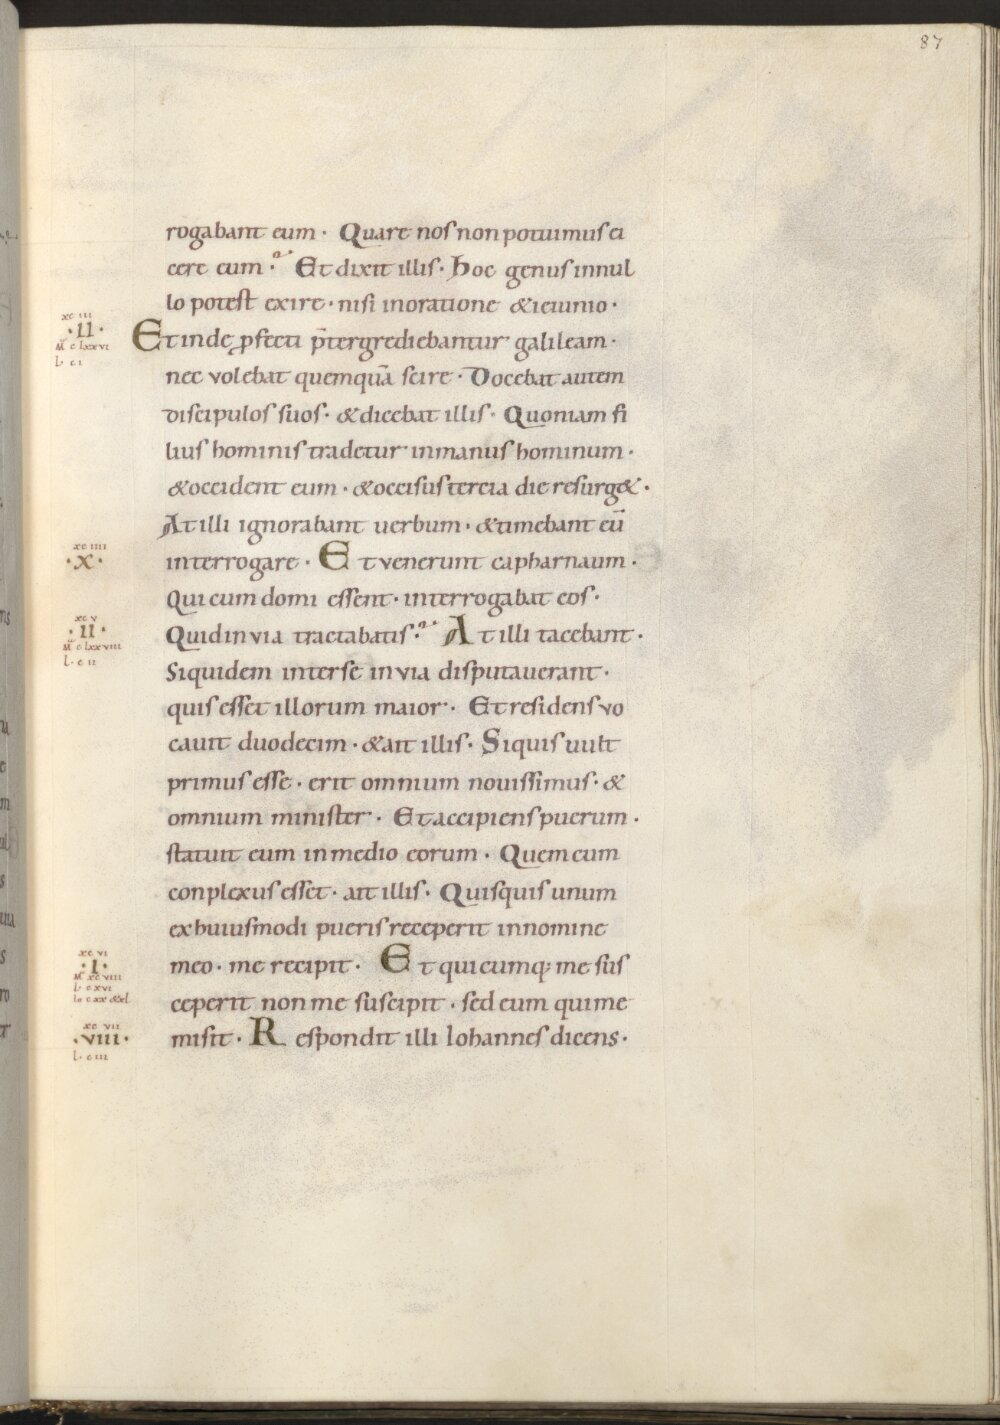 87
rogabant eum · Quare nos non potuimus ei
cere eum · Et dixit illis · hoc genus in nul
lo potest exire · nisi in oratione & ieiunio ·
xc iii
· II ·
M c lxxvi
L · c i
Et inde ꝓfecti p̄tergrediebantur galileam ·
nec volebat quemquā scire · Docebat autem
discipulos suos · & dicebat illis · Quoniam fi
lius hominis tradetur in manus hominum ·
& occident eum · & occisus tercia die resurg& ·
At illi ignorabant uerbum · & timebant eū
xc iiii
· X ·
interrogare · Et venerunt capharnaum ·
Qui cum domi essent · interrogabat eos ·
xc v
· II ·
M c lxxviii
L · c ii
Quid in via tractabatis · At illi tacebant ·
Siquidem inter se in via disputauerant ·
quis esset illorum maior · Et residens vo
cauit duodecim · & ait illis · Si quis uult
primus esse · erit omnium nouissimus · &
omnium minister · Et accipiens puerum ·
statuit eum in medio eorum · Quem cum
conplexus esset · ait illis · Quisquis unum
ex huiusmodi pueris receperit in nomine
xc vi
· I ·
M xc viii
L · c xvi
Io c xx
meo · me recipit · Et quicumq; me sus
ceperit non me suscipit · sed eum qui me
xc vii
· VIII ·
L · c iii
misit · Respondit illi Iohannes dicens ·